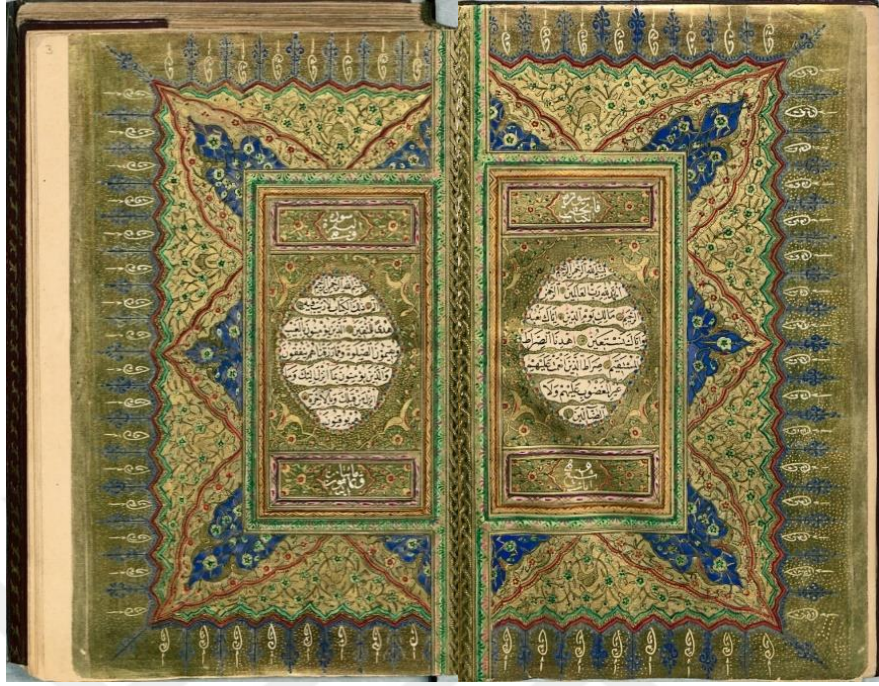 سورة فاتحة الكتاب
بسم الله الرحمن الرحيم
الحمد لله رب العالمين الرحمن
الرحيم مالك يوم الدين اياك نعبد و
اياك نستعين اهدنا الصراط
المستقيم صراط الذين انعمت عليهم
غير المغضوب عليهم ولا
الضالين
وهي سبع آيات
سورة البقرة
بسم الله الرحمن الرحيم
الم ذلك الكتاب لا ريب فيه
هدى للمتقين الذين يؤمنون بالغيب
ويقيمون الصلوة ومما رزقناهم ينفقون
والذين يؤمنون بما انزل اليك وما
انزل من قبلك وبالاخرة
هم يوقنون
3